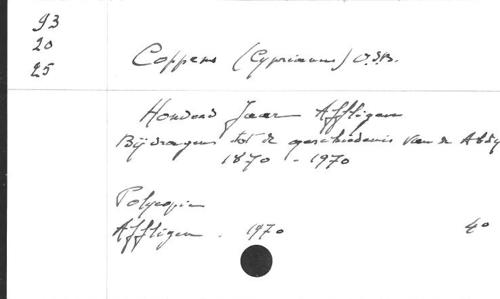 93
20
25
Coppens (Cyprianus) O.S.B.
Honderd Jaar Affligem
Bijdragen tot de geschiedenis van de Abdij
1870 - 1970
Polycopie
Affligem . 1970 4o